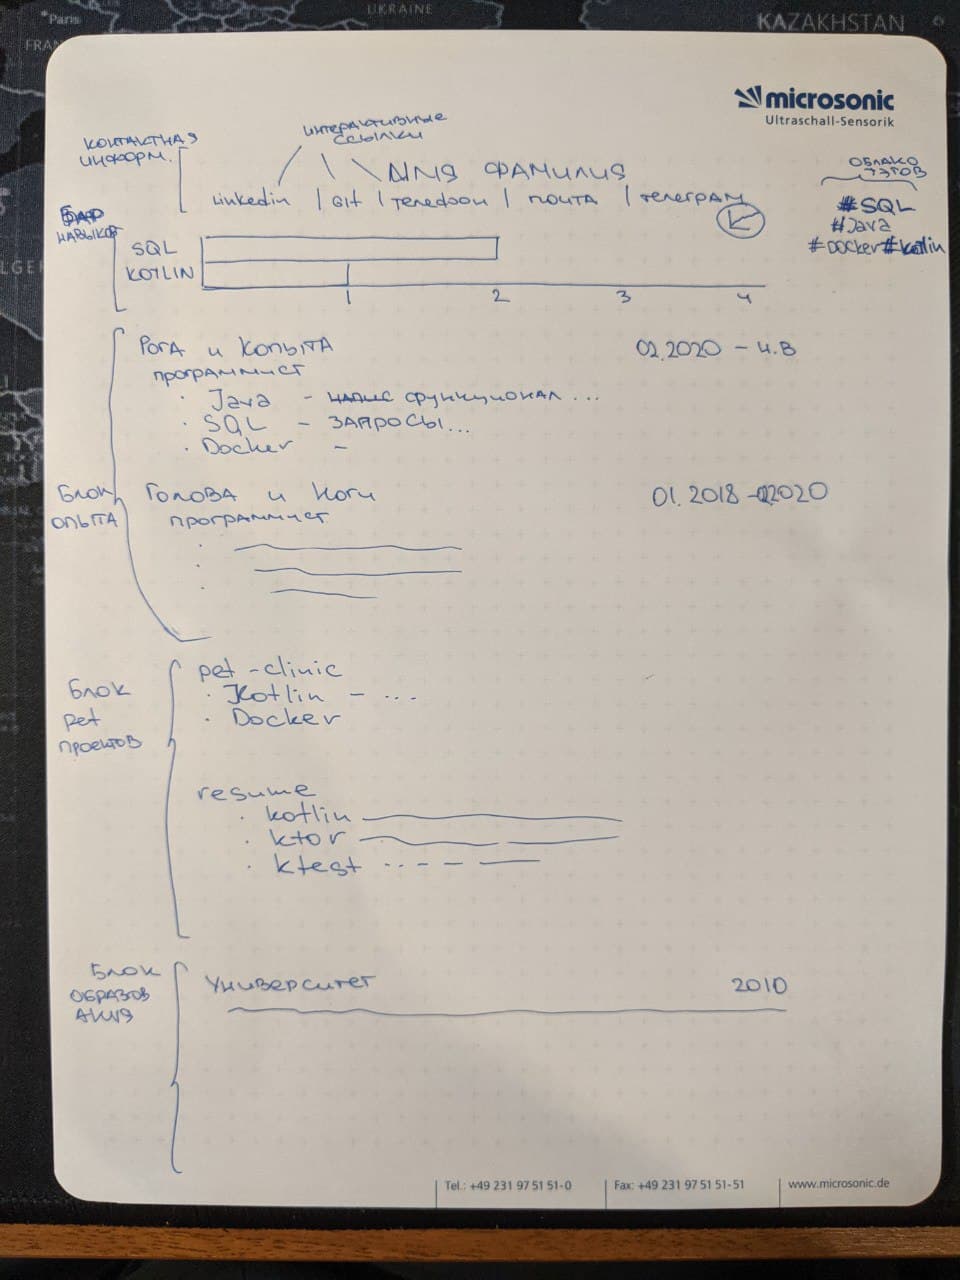 Paris
UKRAINE
KAZAKHSTAN
FRAN
LGER
microsonic
Ultraschall-Sensorik
КОНТАКТНАЯ
ИНФОРМ.
ИНТЕРАКТИВНЫЕ
ССЫЛКИ
ИМЯ ФАМИЛИЯ
Linkedin | Git | Телефон | ПОЧТА | Телеграм
ОБЛАКО
ТЭГОВ
#SQL
#Java
#Docker #kotlin
БАР
НАВЫКОВ
SQL
KOTLIN
1 2 3 4
РОГА и КОПЫТА 02.2020 – Н.В
программист
· Java – напис функционал ...
· SQL – ЗАПРОСЫ...
· Docker –
БЛОК
ОПЫТА
ГОЛОВА и Ноги 01.2018 – 02.2020
программист
БЛОК
pet
проектов
pet-clinic
· Kotlin – ...
· Docker
resume
· kotlin
· ktor
· ktest
БЛОК
ОБРАЗОВ
АНИЯ
Университет 2010
Tel.: +49 231 97 51 51-0
Fax: +49 231 97 51 51-51
www.microsonic.de